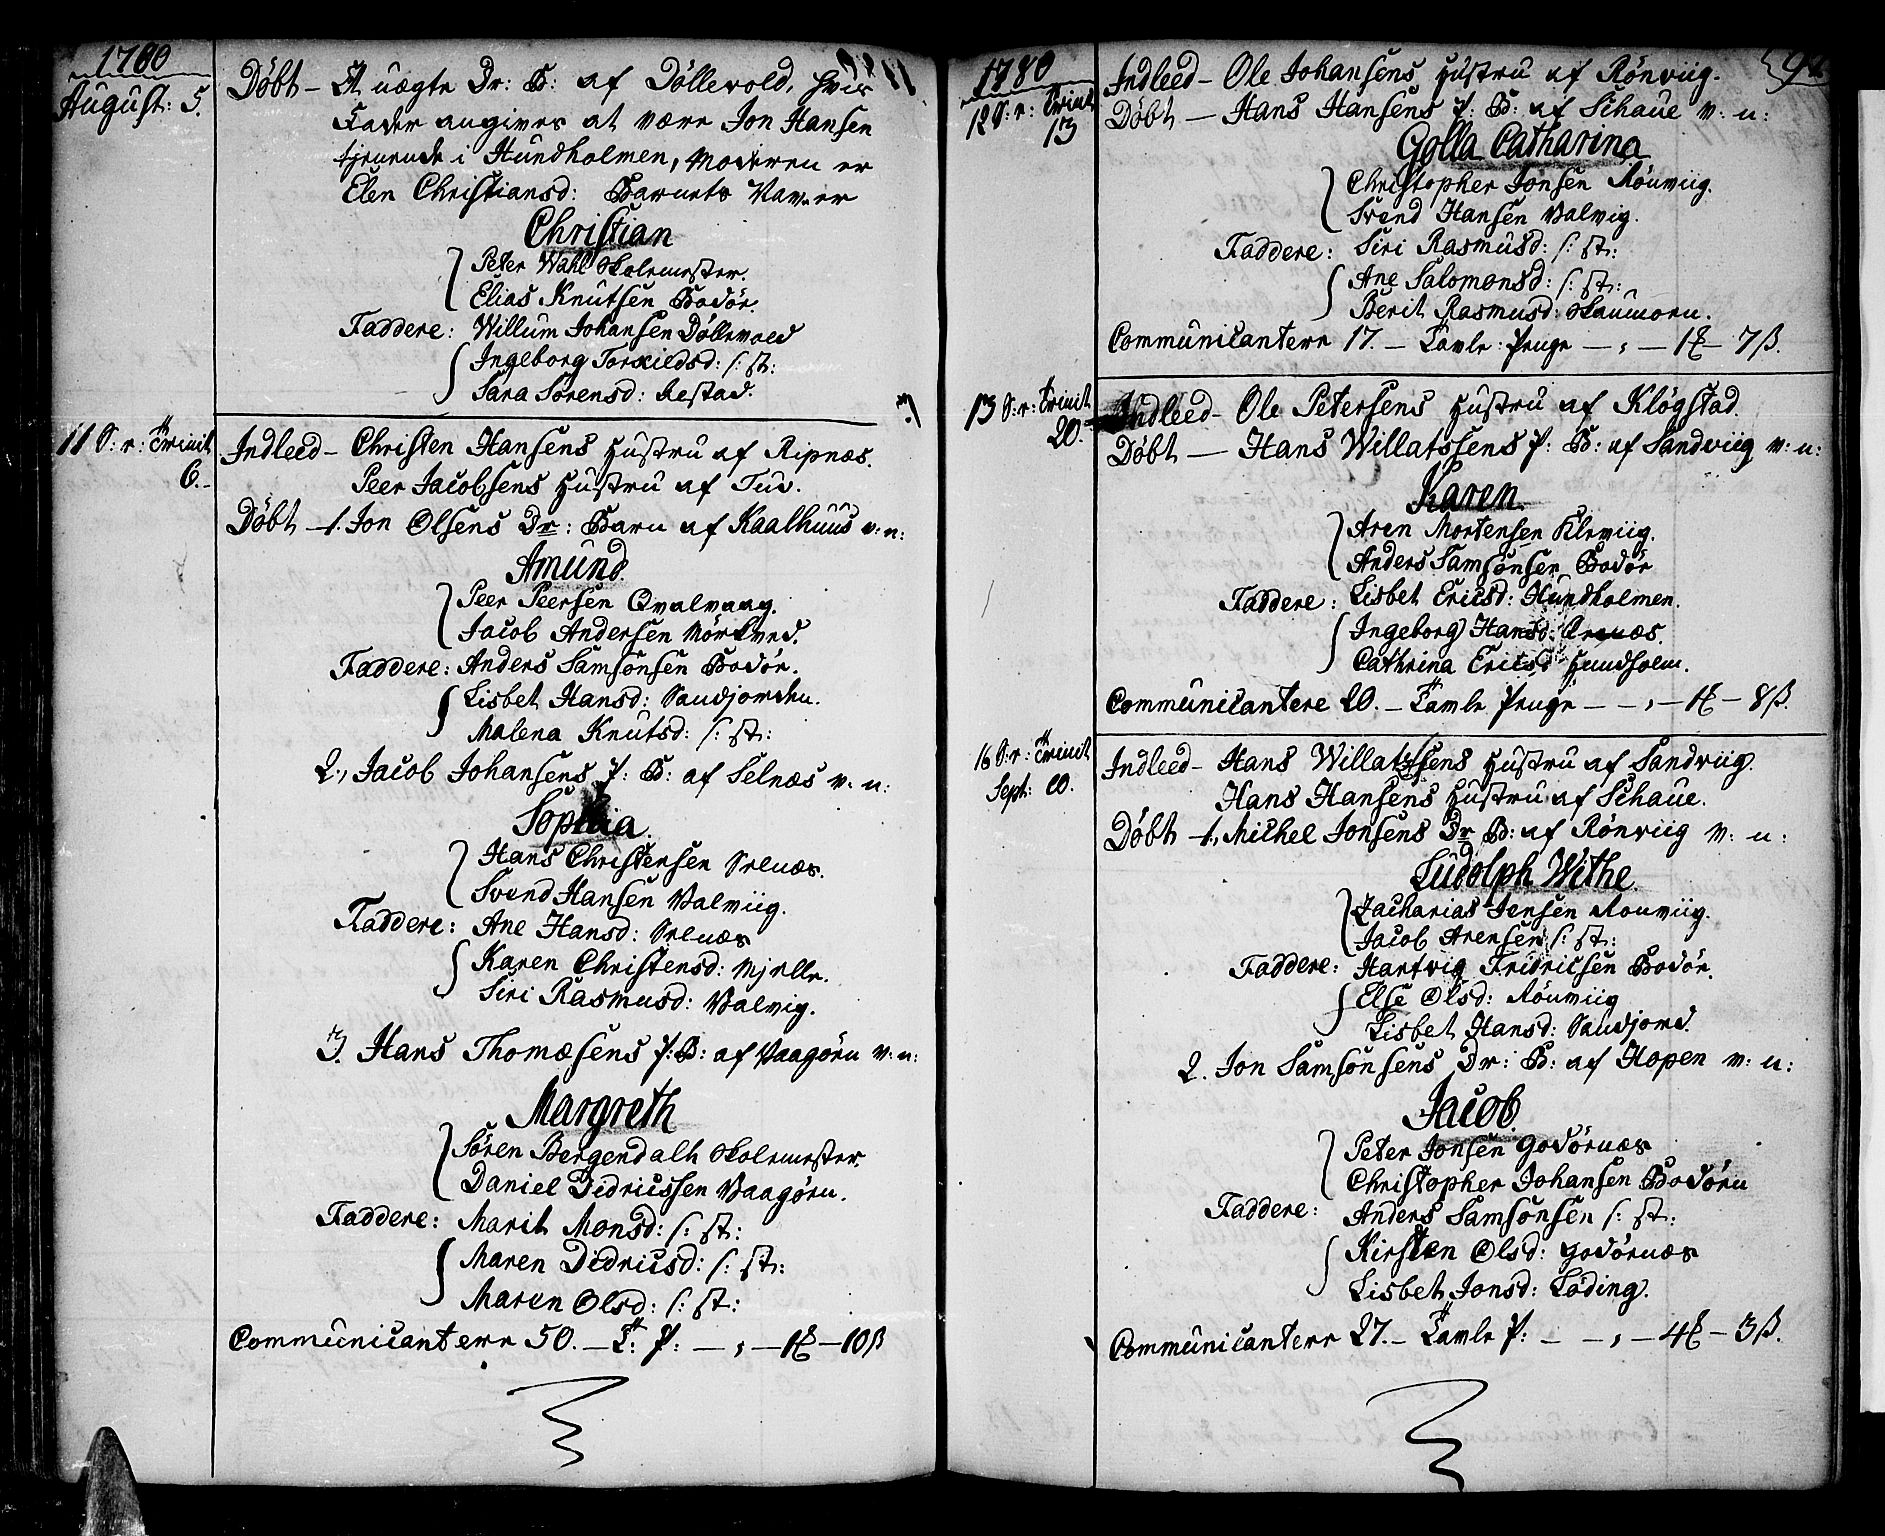 1780
August: 5.
Døbt - Et uægte Dr: B: af Döllevold, hvis
Fader angives at være Jon Hansen
tjenende i Hundholmen, Moderen er
Elen Christiansd: Barnets Navn er
Christian
Peter Wahl Skolemester.
Elias Knutsen Bodör.
Faddere: Willum Johansen Döllevold
Ingeborg Torkildsd: s: st:
Sara Sørensd: Restad.
11 S: e: Trinit
6.
Indleed - Christen Hansens Hustru af Ripnæs.
Peer Jacobsens Hustru af Tuv.
Døbt - 1. Jon Olsens Dr: Barn af Kaalhuus v: n:
Amund.
Peer Peersen Qvalvaag.
Jacob Andersen Nörkved.
Faddere: Anders Samsonsen Bodör.
Lisbet Hansd: Sandjorden.
Malena Knutsd: s: st:
2., Jacob Johansens P: B: af Selnæs v: n:
Sophia.
Hans Christensen Selnæs.
Svend Hansen Valviig.
Faddere: Ane Hansd: Selnæs
Karen Christensd: Mjelle.
Siri Rasmusd: Valvig.
3. Hans Thomæsens P: B: af Vaagörn v: n:
Margreth
Sören Bergendahl Skolemester.
Daniel Didricssen Vaagörn.
Faddere: Marit Monsd: s: st:
Maren Didricsd: s: st:
Maren Olsd: s: st:
Communicantere 50. - T: P: - , - 1 - 10 ß
1780
12 S: e: Trinit
13
Indleed - Ole Johansens Hustru af Rönviig.
Døbt - Hans Hansens P: B: af Schaue v: n:
Golla Catharina
Christopher Jonsen Rönviig.
Svend Hansen Valvig.
Faddere: Siri Rasmusd: s: st:
Ane Salomonsd: s: st:
Berit Rasmusd: Skaumoen.
Communicantere 17. - Tavle: Penge - , - 1 - 7 ß.
13 S: e: Trinit
20.
Indleed - Ole Petersens Hustru af Klögstad.
Døbt - Hans Willatssens P: B: af Sandviig v: n:
Karen.
Aren Mortensen Kleviig.
Anders Samsonsen Bodör
Faddere: Lisbet Ericsd: Hundholmen.
Ingeborg Hansd:
Cathrina Ericsd Hundholm.
Communicantere 20. - Tavle Penge - - , - 1 - 8 ß.
16 S: e: Trinit
Sept: 10.
Indleed - Hans Willatssens Hustru af Sandviig.
Hans Hansens Hustru af Schaue.
Døbt - 1., Michel Jonsens Dr B: af Rönviig v: n:
Ludolph Withe
Zacharias Jensen Rönviig.
Jacob Arensen s: st:
Faddere: Hartvig Fridricsen Bodör.
Else Olsd: Rönviig
Lisbet Hansd: Sandjord.
2. Jon Samsonsens Dr: B: af Hopen v: n:
Jacob.
Peter Jonsen Godörnæs
Christopher Johansen Bodörn
Faddere: Anders Samsonsen s: st:
Kirsten Olsd: Godörnæs
Lisbet Jonsd: Löding.
Communicantere 27. - Tavle P: - - , - 4 - 3 ß.